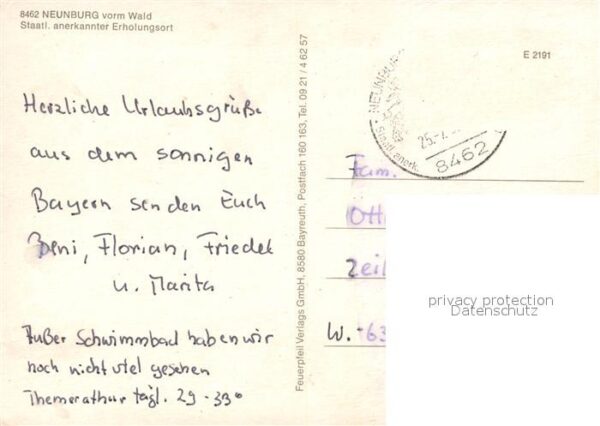 8462 NEUNBURG vorm Wald
Staatl. anerkannter Erholungsort
Herzliche Urlaubsgrüße
aus dem sonnigen
Bayern senden Euch
Beni, Florian, Friedel
u. Marita
Außer Schwimmbad haben wir
noch nicht viel gesehen
Themerathur tägl. 29-33°
Feuerpfeil Verlags GmbH, 8580 Bayreuth, Postfach 160 163, Tel. 09 21 / 4 62 57
E 2191
NEUNBURG
Staatl. anerk.
25.-7.
8462
Fam.
Ott
Zeil
W.-63
privacy protection
Datenschutz